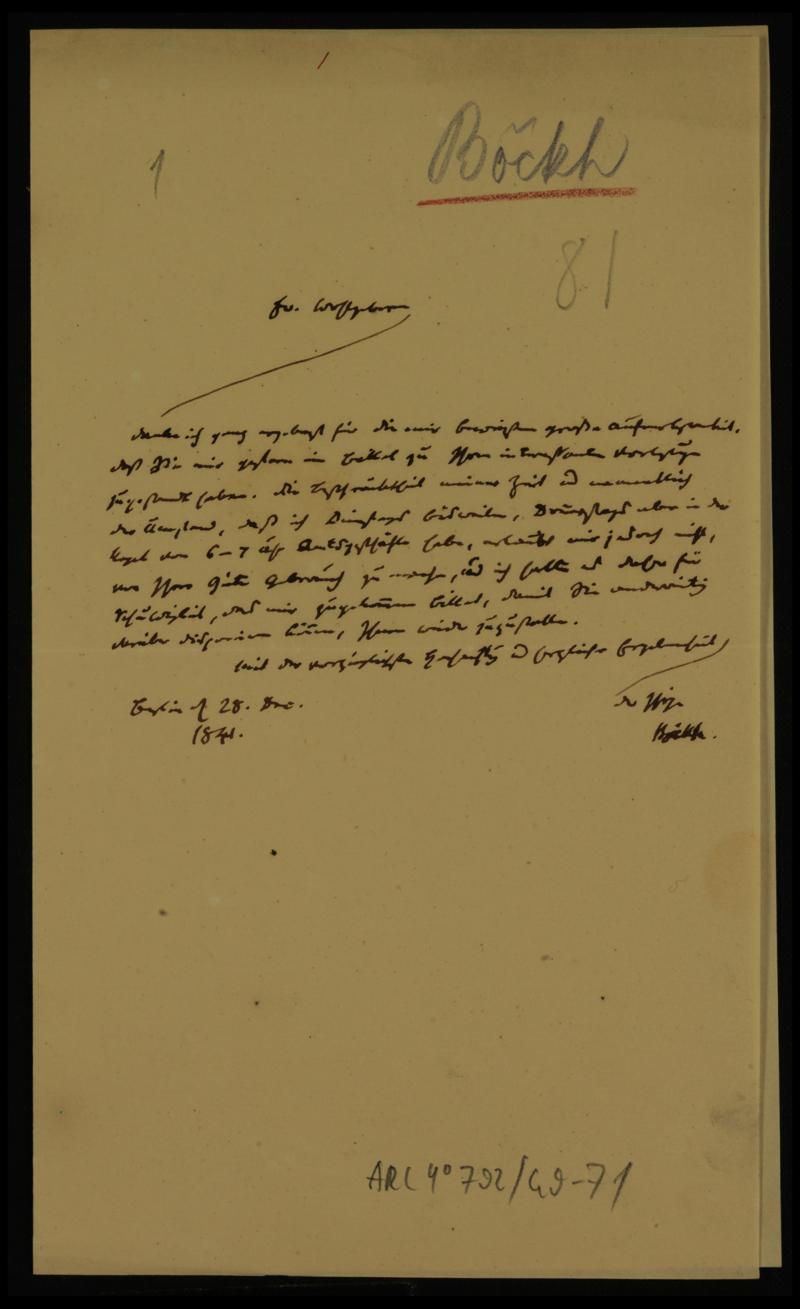 1
Böckh
81
Ew. Wohlgeboren
danke ich ganz ergebenst für die mir bewiesene große Aufmerksamkeit,
daß Sie mir gestern ein Billet zu Ihren interessanten Vorträgen
zugesandt haben. Die Beschränktheit meiner Zeit und namentlich
der Umstand, daß ich Dienstags bisweilen, Donnerstags aber in der
Regel von 6-7 Uhr Amtsgeschäfte habe, erlaubt mir jedoch nicht,
von Ihrer Güte Gebrauch zu machen, und ich halte es daher für
Schuldigkeit, das mir zugekommene Billet, damit Sie anderweitig
darüber disponiren können, Ihnen wieder zuzustellen.
Mit der vorzüglichsten Hochachtung und herzlicher Ergebenheit
Berlin d 28. Dec.
1841.
der Ihrige
Böckh.
ARC 4° 792/G9-71